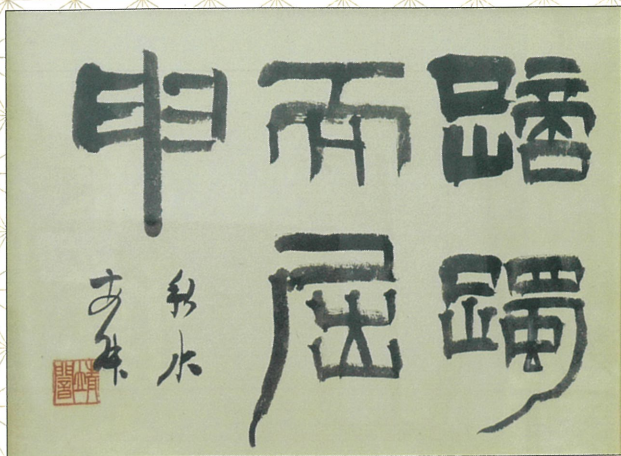 蹢躅
而屈
申
秋水